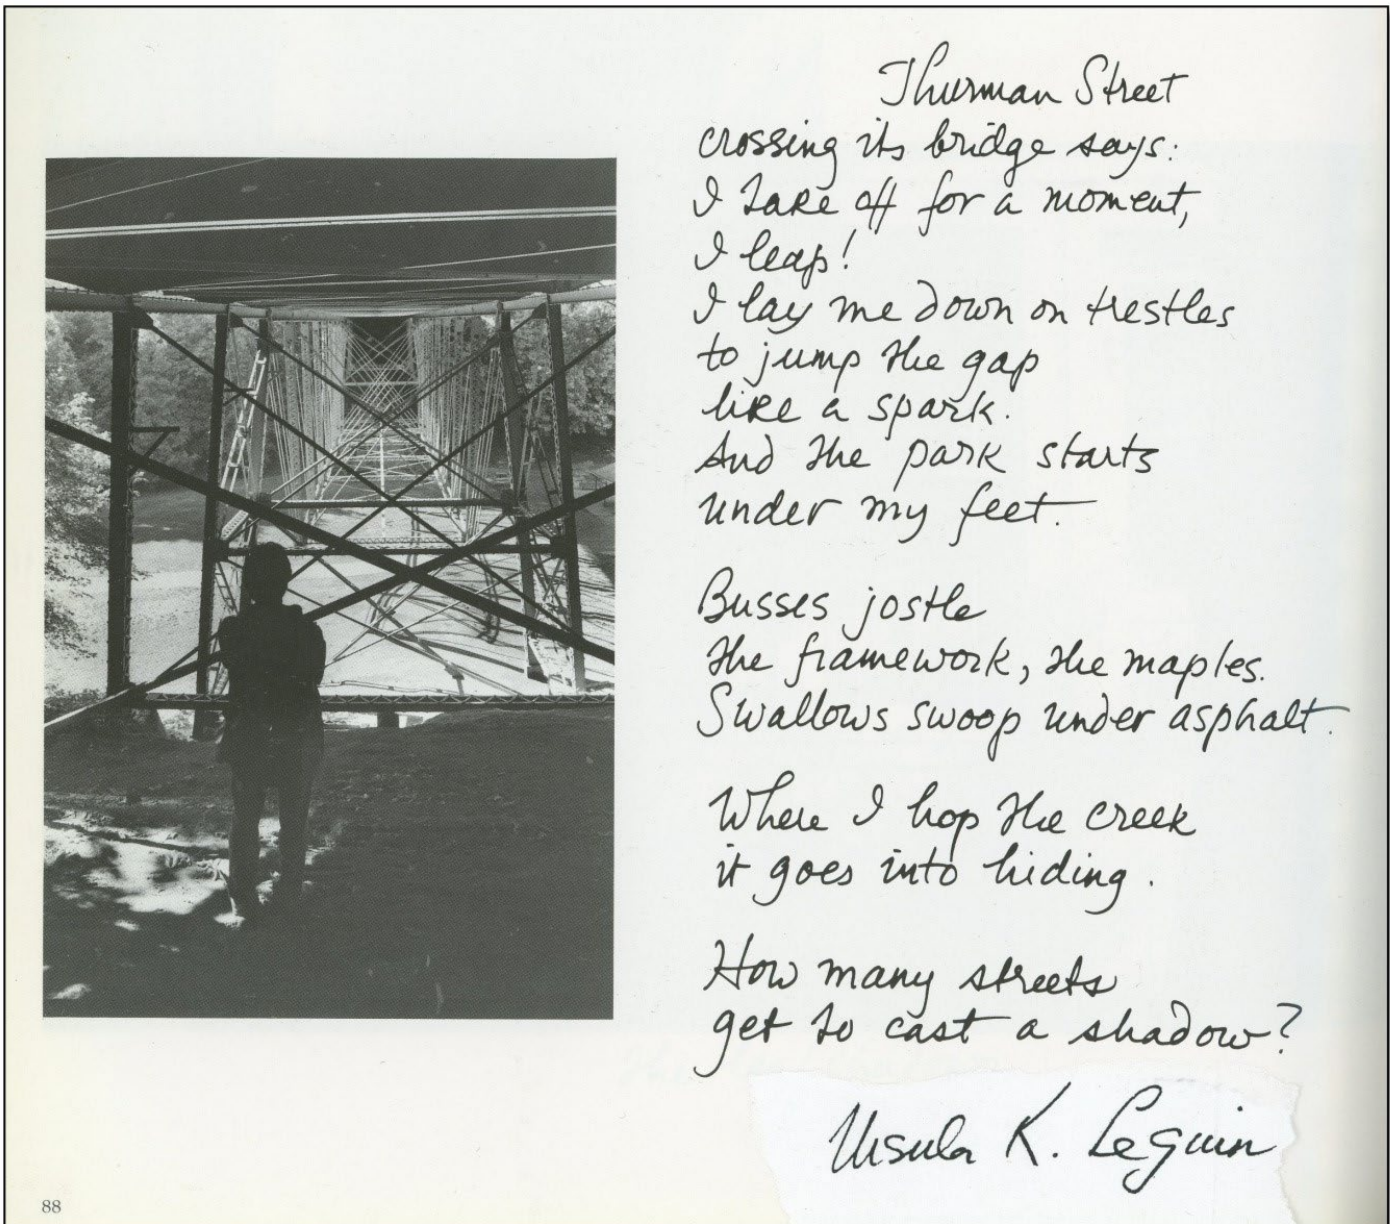 Thurman Street
crossing its bridge says:
I take off for a moment,
I leap!
I lay me down on trestles
to jump the gap
like a spark.
And the park starts
under my feet.
Busses jostle
the framework, the maples.
Swallows swoop under asphalt.
Where I hop the creek
it goes into hiding.
How many streets
get to cast a shadow?
Ursula K. LeGuin
88